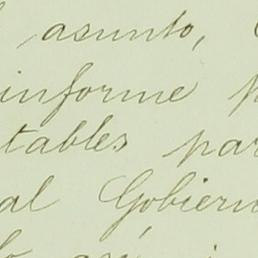 asunto,
informe
tables par
al Gobiern